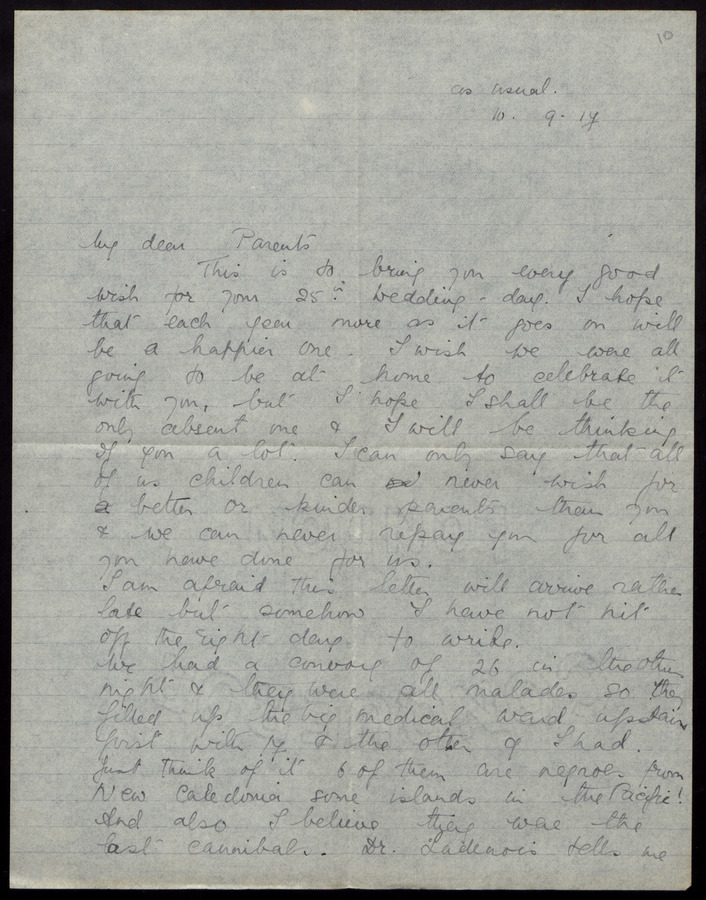 10
as usual.
10. 9. 17
My dear Parents
This is to bring you every good
wish for your 25th wedding-day. I hope
that each year more as it goes on will
be a happier one. I wish we were all
going to be at home to celebrate it
with you, but I hope I shall be the
only absent one & I will be thinking
of you a lot. I can only say that all
of us children can never wish for
a better or kinder parents than you
& we can never repay you for all
you have done for us.
I am afraid this letter will arrive rather
late but somehow I have not hit
off the right day to write.
We had a convoy of 26 in the other
night & they were all malades so they
filled up the big medical ward upstairs
first with 17 & the other 9 I had.
Just think of it 6 of them are negroes from
New Caledonia some islands in the Pacific!
And also I believe they were the
last cannibals. Dr. tells me